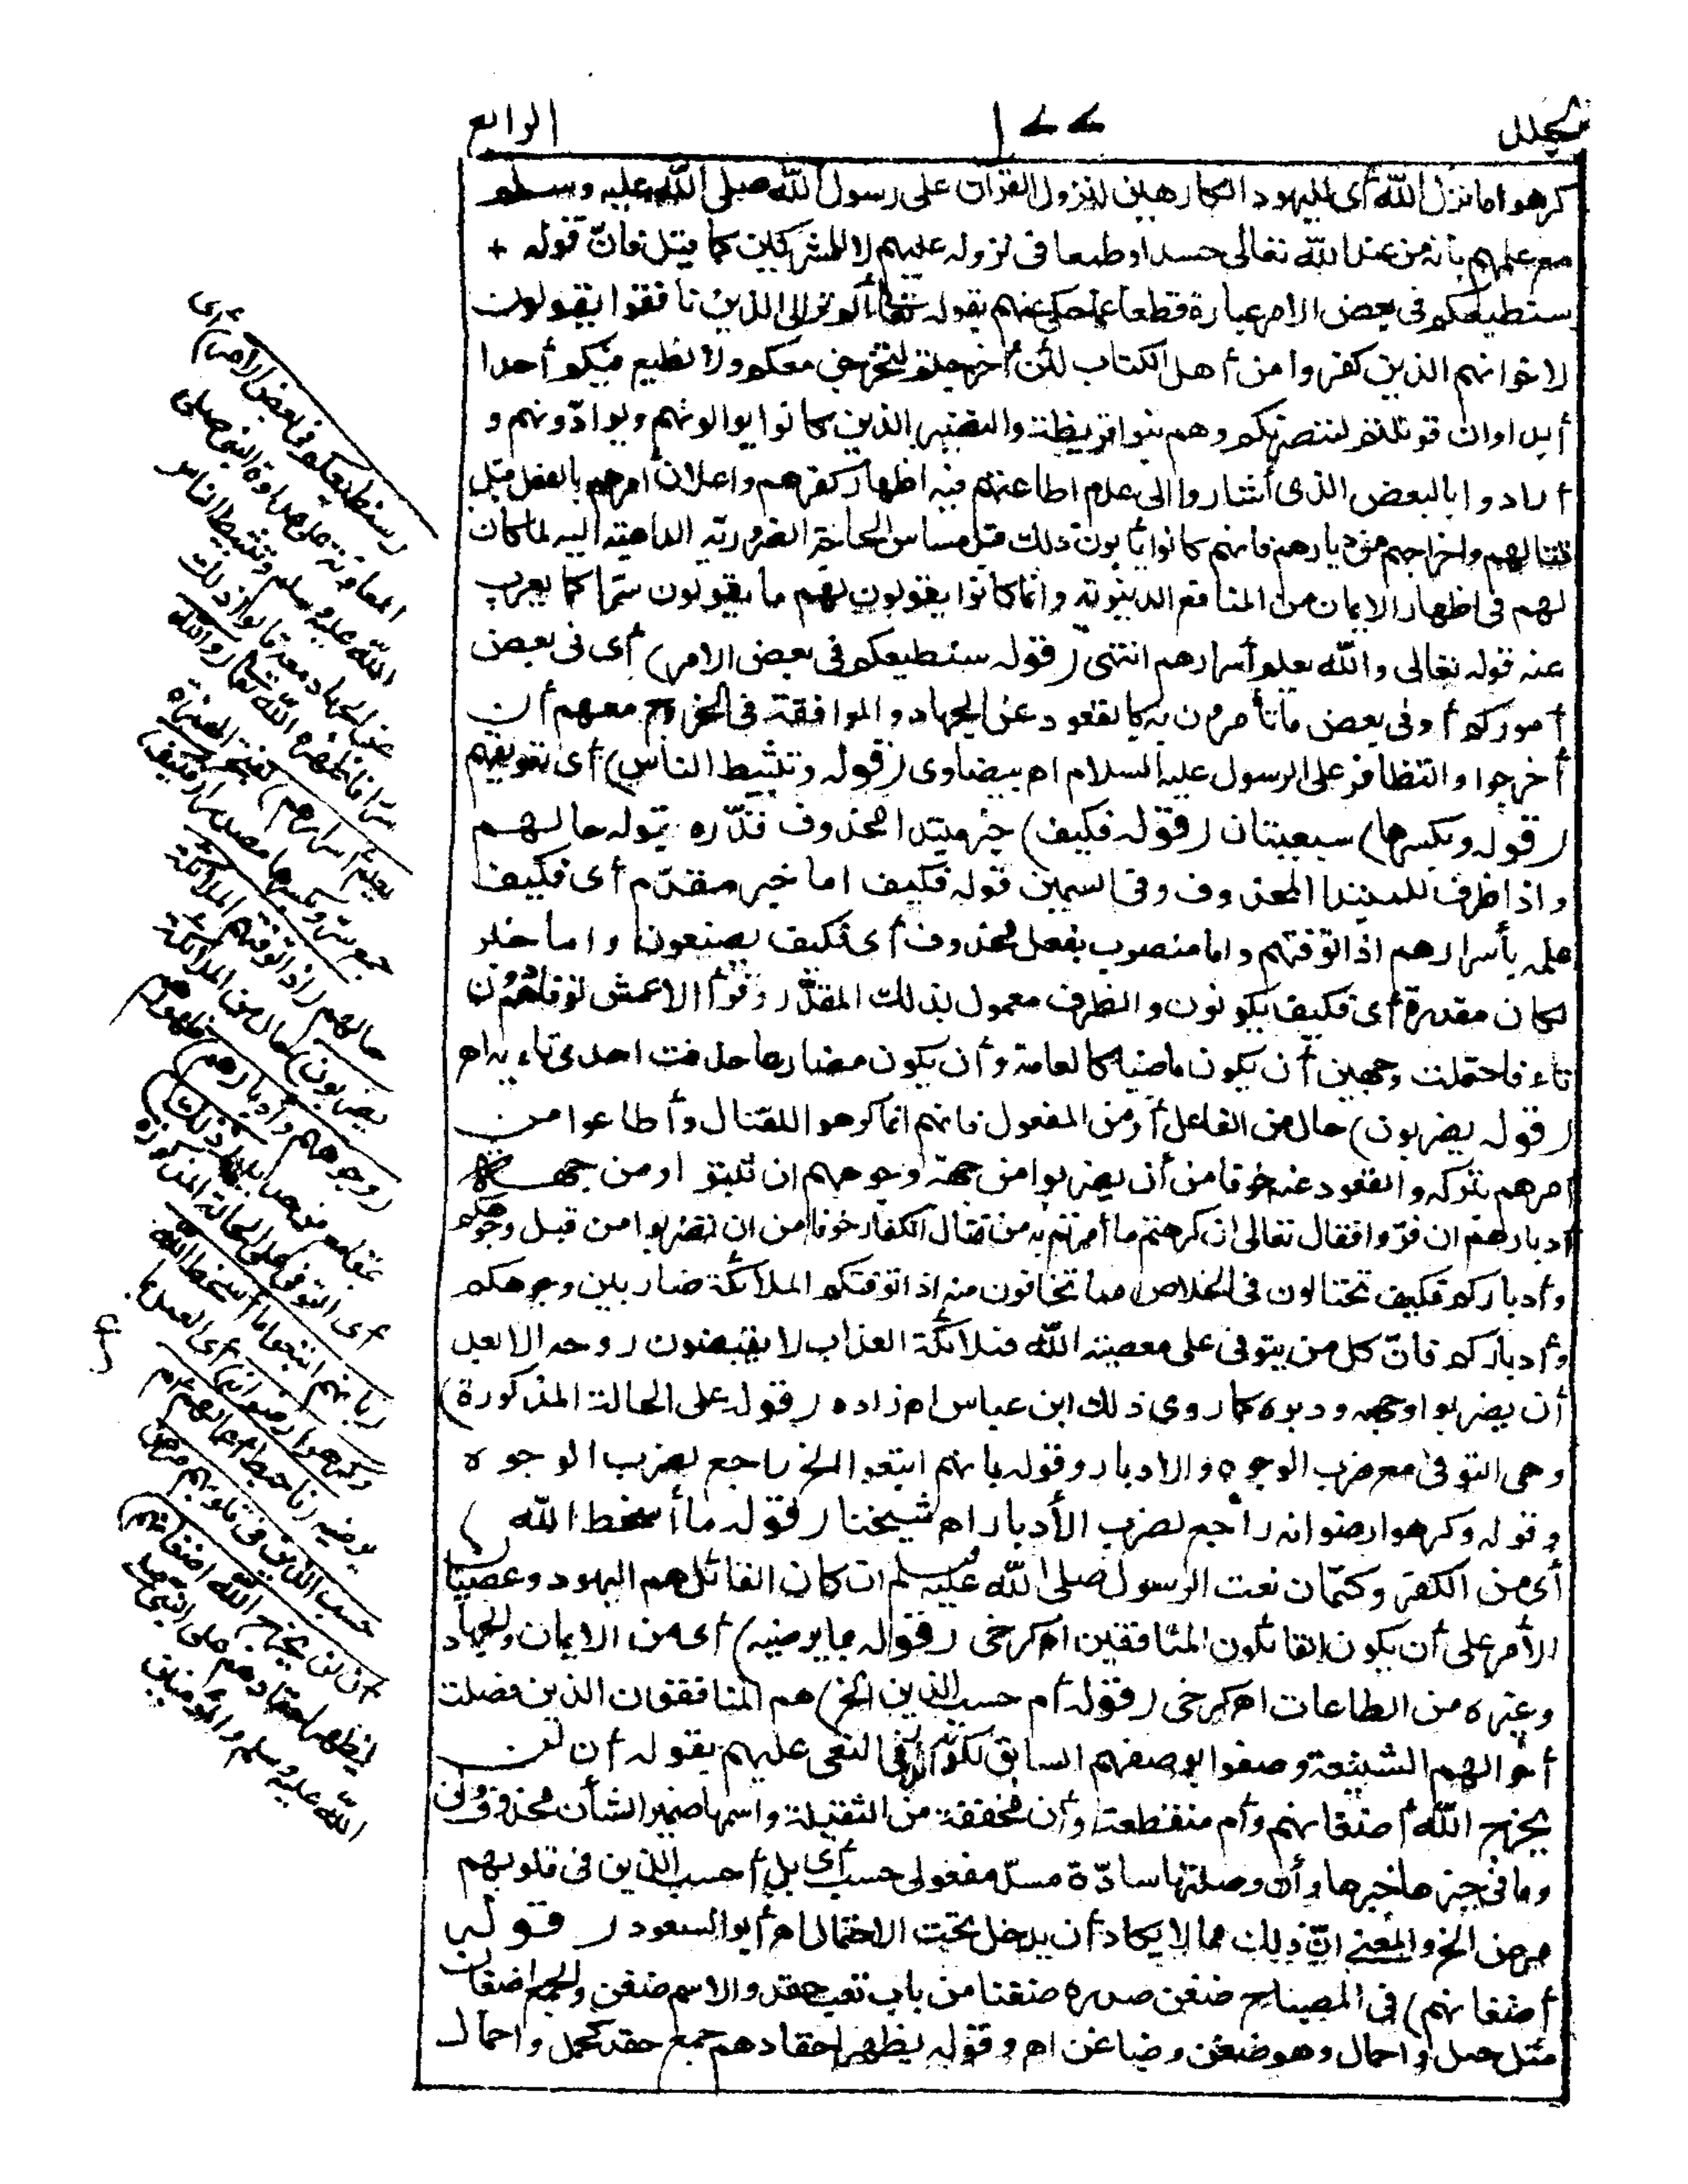 الرابع
كرهوا ما نزل الله أى لليهود الكارهين لنزول القرآن على رسول الله صلى الله عليه وسلم
مع علمهم بأنه من عند الله تعالى حسدا وطمعا فى نزوله عليهم لا للمشركين كما قيل فانّ قوله +
سنطيعكم فى بعض الامر عبارة قطعا عما حكى عنهم بقوله تعالى ألم تر الى الذين نافقوا يقولون
لاخوانهم الذين كفروا من أهل الكتاب لئن أخرجتم لنخرجن معكم ولا نطيع فيكم أحدا
أبدا وان قوتلتم لننصرنكم وهم بنو قريظة والنضير الذين كانوا يوالونهم ويوادّونهم و
أرادوا بالبعض الذى أشاروا الى عدم اطاعتهم فيه اظهار كفرهم واعلان أمرهم بالفعل قبل
قتالهم واخراجهم من ديارهم فانهم كانوا يأبون ذلك قبل مساس الحاجة الضرورية الداعية اليه لما كان
لهم فى اظهار الايمان من المنافع الدنيوية وانما كانوا يقولون لهم ما يقولون سرّا كما يعرب
عنه قوله تعالى والله يعلم أسرارهم انتهى (قوله سنطيعكم فى بعض الامر) أى فى بعض
أموركم أو فى بعض ما تأمرون به كالقعود عن الجهاد والموافقة فى الخروج معهم أن
أخرجوا والتظافر على الرسول عليه السلام اه بيضاوى (قوله وتثبيط الناس) أى تعويقهم
(قوله وبكسرها) سبعيتان (قوله فكيف) خبر مبتدا محذوف قدّره بقوله حالهم
واذا ظرف للمبتدا المحذوف وفى السمين قوله فكيف اما خبر مقدّم أى فكيف
علمه بأسرارهم اذا توفتهم واما منصوب بفعل محذوف أى فكيف يصنعون واما خبر
لكان مقدرة أى فكيف يكونون والظرف معمول لذلك المقدّر وقرأ الاعمش توفاهم دون
تاء فاحتملت وجهين أن يكون ماضيا كالعامة وأن يكون مضارعا حذفت احدى تاءيه اه
(قوله يضربون) حال من الفاعل أو من المفعول فانهم انما كرهوا القتال وأطاعوا من
أمرهم بتركه والقعود عنه خوفا من أن يضربوا من جهة وجوههم ان ثبتوا أو من جهة
أدبارهم ان فرّوا فقال تعالى ان كرهتم ما أمرتم به من قتال الكفار خوفا من ان تضربوا من قبل وجوهكم
وأدباركم فكيف تحتالون فى الخلاص مما تخافون منه اذا توفتكم الملائكة ضاربين وجوهكم
وأدباركم فانّ كل من يتوفى على معصية الله فملائكة العذاب لا يقبضون روحه الا بعد
أن يضربوا وجهه ودبره كما روى ذلك ابن عباس اه زاده (قوله على الحالة المذكورة)
وهى التوفى مع ضرب الوجوه والادبار وقوله بانهم اتبعوا الخ راجع لضرب الوجوه
وقوله وكرهوا رضوانه راجع لضرب الأدبار اه شيخنا (قوله ما أسخط الله)
أى من الكفر وكتمان نعت الرسول صلى الله عليه وسلم ان كان القائل هم اليهود وعصيان
الأمر على أن يكون القائلون المنافقين اه كرخى (قوله بما يرضيه) أى من الايمان والجهاد
وغيره من الطاعات اه كرخى (قوله أم حسب الذين الخ) هم المنافقون الذين فصلت
أحوالهم الشنيعة وصفوا بوصفهم السابق لكونه مدارا فى النعى عليهم بقوله أن لن
يخرج الله أضغانهم وأم منقطعة وأن مخففة من الثقيلة واسمها ضمير الشأن محذوف ولن
وما فى حيزها خبرها وأن وصلتها سادّة مسدّ مفعولى حسب أى بل أحسب الذين فى قلوبهم
مرض الخ والمعنى انّ ذلك مما لا يكاد أن يدخل تحت الاحتمال اه أبو السعود (قوله
أضغانهم) فى المصباح ضغن صدره ضغنا من باب تعب حقد والاسم ضغن والجمع أضغان
مثل حمل وأحمال وهو ضغن وضاغن اه وقوله يظهر أحقادهم جمع حقد كحمل وأحمال
(سنطيعكم فى بعض الامر) أى
المعاونة على عداوة النبى صلى
الله عليه وسلم وتثبيط الناس
عن الجهاد معه قالوا ذلك
سرّا فاظهره الله تعالى (والله
يعلم أسرارهم) بفتح الهمزة
جمع سر وبكسرها مصدر (فكيف)
حالهم (اذا توفتهم الملائكة
يضربون) حال من الملائكة
(وجوههم وأدبارهم) ظهورهم
بمقامع من حديد (ذلك)
أى التوفى على الحالة المذكورة
(بانهم اتبعوا ما أسخط الله
وكرهوا رضوانه) أى العمل بما
يرضيه (فاحبط أعمالهم أم
حسب الذين فى قلوبهم مرض
أن لن يخرج الله أضغانهم)
يظهر أحقادهم على النبى صلى
الله عليه وسلم والمؤمنين